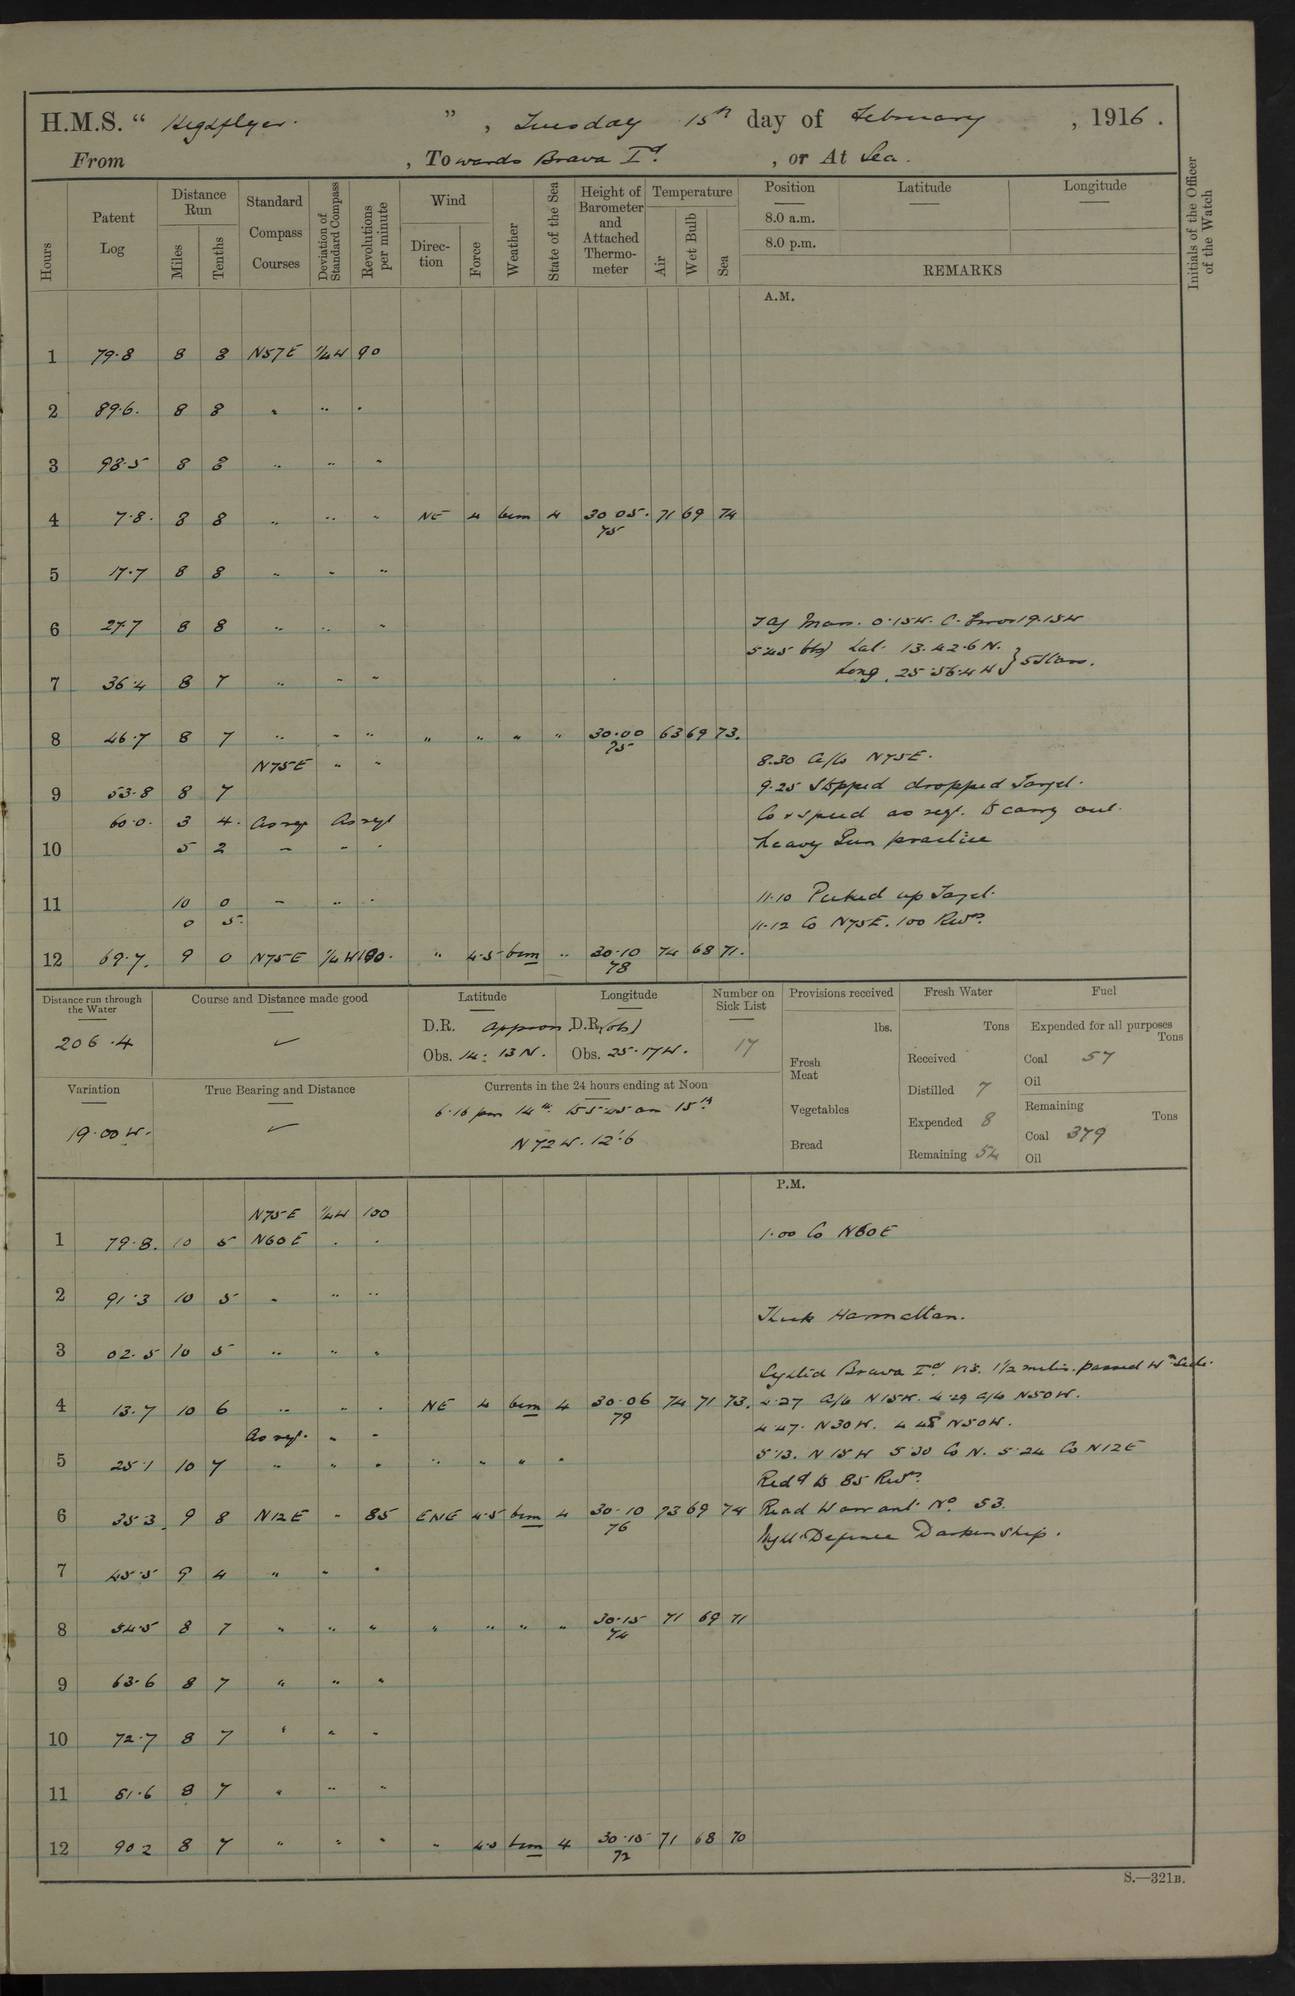 H.M.S. " Highflyer. " , Tuesday 15th day of February , 1916 .
From , Towards Brava Id. , or At Sea.
Hours Patent Log Distance Run Miles Tenths Standard Compass Courses Deviation of Standard Compass Revolutions per minute Wind Direc-tion Force Weather State of the Sea Height of Barometer and Attached Thermo-meter Temperature Air Wet Bulb Sea Position Latitude Longitude Initials of the Officer of the Watch
8.0 a.m.
8.0 p.m.
REMARKS
A.M.
1 79.8 8 8 N57E 1/4W 90
2 89.6. 8 8 " " "
3 98.5 8 8 " " "
4 7.8. 8 8 " " " NE 4 bcm 4 30.05. 71 69 74
75
5 17.7 8 8 " " "
6 27.7 8 8 " " " Mean. 0.15W. C. Error 19.15W
5.45 Obsd Lat. 13.42.6 N.
Long. 25.56.4 W } 5 Stars.
7 36.4 8 7 " " "
8 46.7 8 7 " " " " " " " 30.00 63 69 73.
75
N75E " " 8.30 A/Co N75E.
9 53.8 8 7 9.25 Stopped dropped Target.
60.0. 3 4. As req As reqd Co & speed as req. to carry out
10 5 2 " " " heavy Gun practice
11 10 0 " " " 11.10 Picked up Target.
0 5. 11.12 Co N75E. 100 Revs.
12 69.7. 9 0 N75E 1/4W 100. " 4.5 bcm " 30.10 74 68 71.
78
Distance run through the Water Course and Distance made good Latitude Longitude Number on Sick List Provisions received Fresh Water Fuel
206.4 D.R. Approx. D.R. (obs) 17 lbs. Tons Expended for all purposes Tons
Obs. 14.13 N. Obs. 25.17 W. Fresh Meat Received Coal 57
Oil
Variation True Bearing and Distance Currents in the 24 hours ending at Noon Distilled 7
19.00 W. 6.16 pm 14th. to 5.45 am 15th Vegetables Expended 8 Remaining Tons
N 72 W. 12'.6 Bread Remaining 54 Coal 379
Oil
P.M.
N75E 1/4W 100
1 79.8. 10 5 N60E " " 1.00 Co N60E
2 91.3 10 5 " " "
Thick Harmattan.
3 02.5 10 5 " " "
Sighted Brava Id. vis. 1 1/2 miles. passed Wn Side.
4 13.7 10 6 " " " NE 4 bcm 4 30.06 74 71 73. 4.27 A/Co N15W. 4.29 A/Co N50W.
79
As req. " " 4.47. N30W. 4.48 N50W.
5 25.1 10 7 " " " " " " " 5.13. N15W 5.30 Co N. 5.24 Co N12E
Redd to 85 Revs.
6 35.3 9 8 N12E " 85 ENE 4.5 bcm 4 30.10 73 69 74 Read Warrant No. 53.
76
Night Defence Darken Ship.
7 45.5 9 4 " " "
8 54.5 8 7 " " " " " " " 30.15 71 69 71
74
9 63.6 8 7 " " "
10 72.7 8 7 " " "
11 81.6 8 7 " " "
12 90.2 8 7 " " " " 4.5 bcm 4 30.15 71 68 70
72
S.—321B.